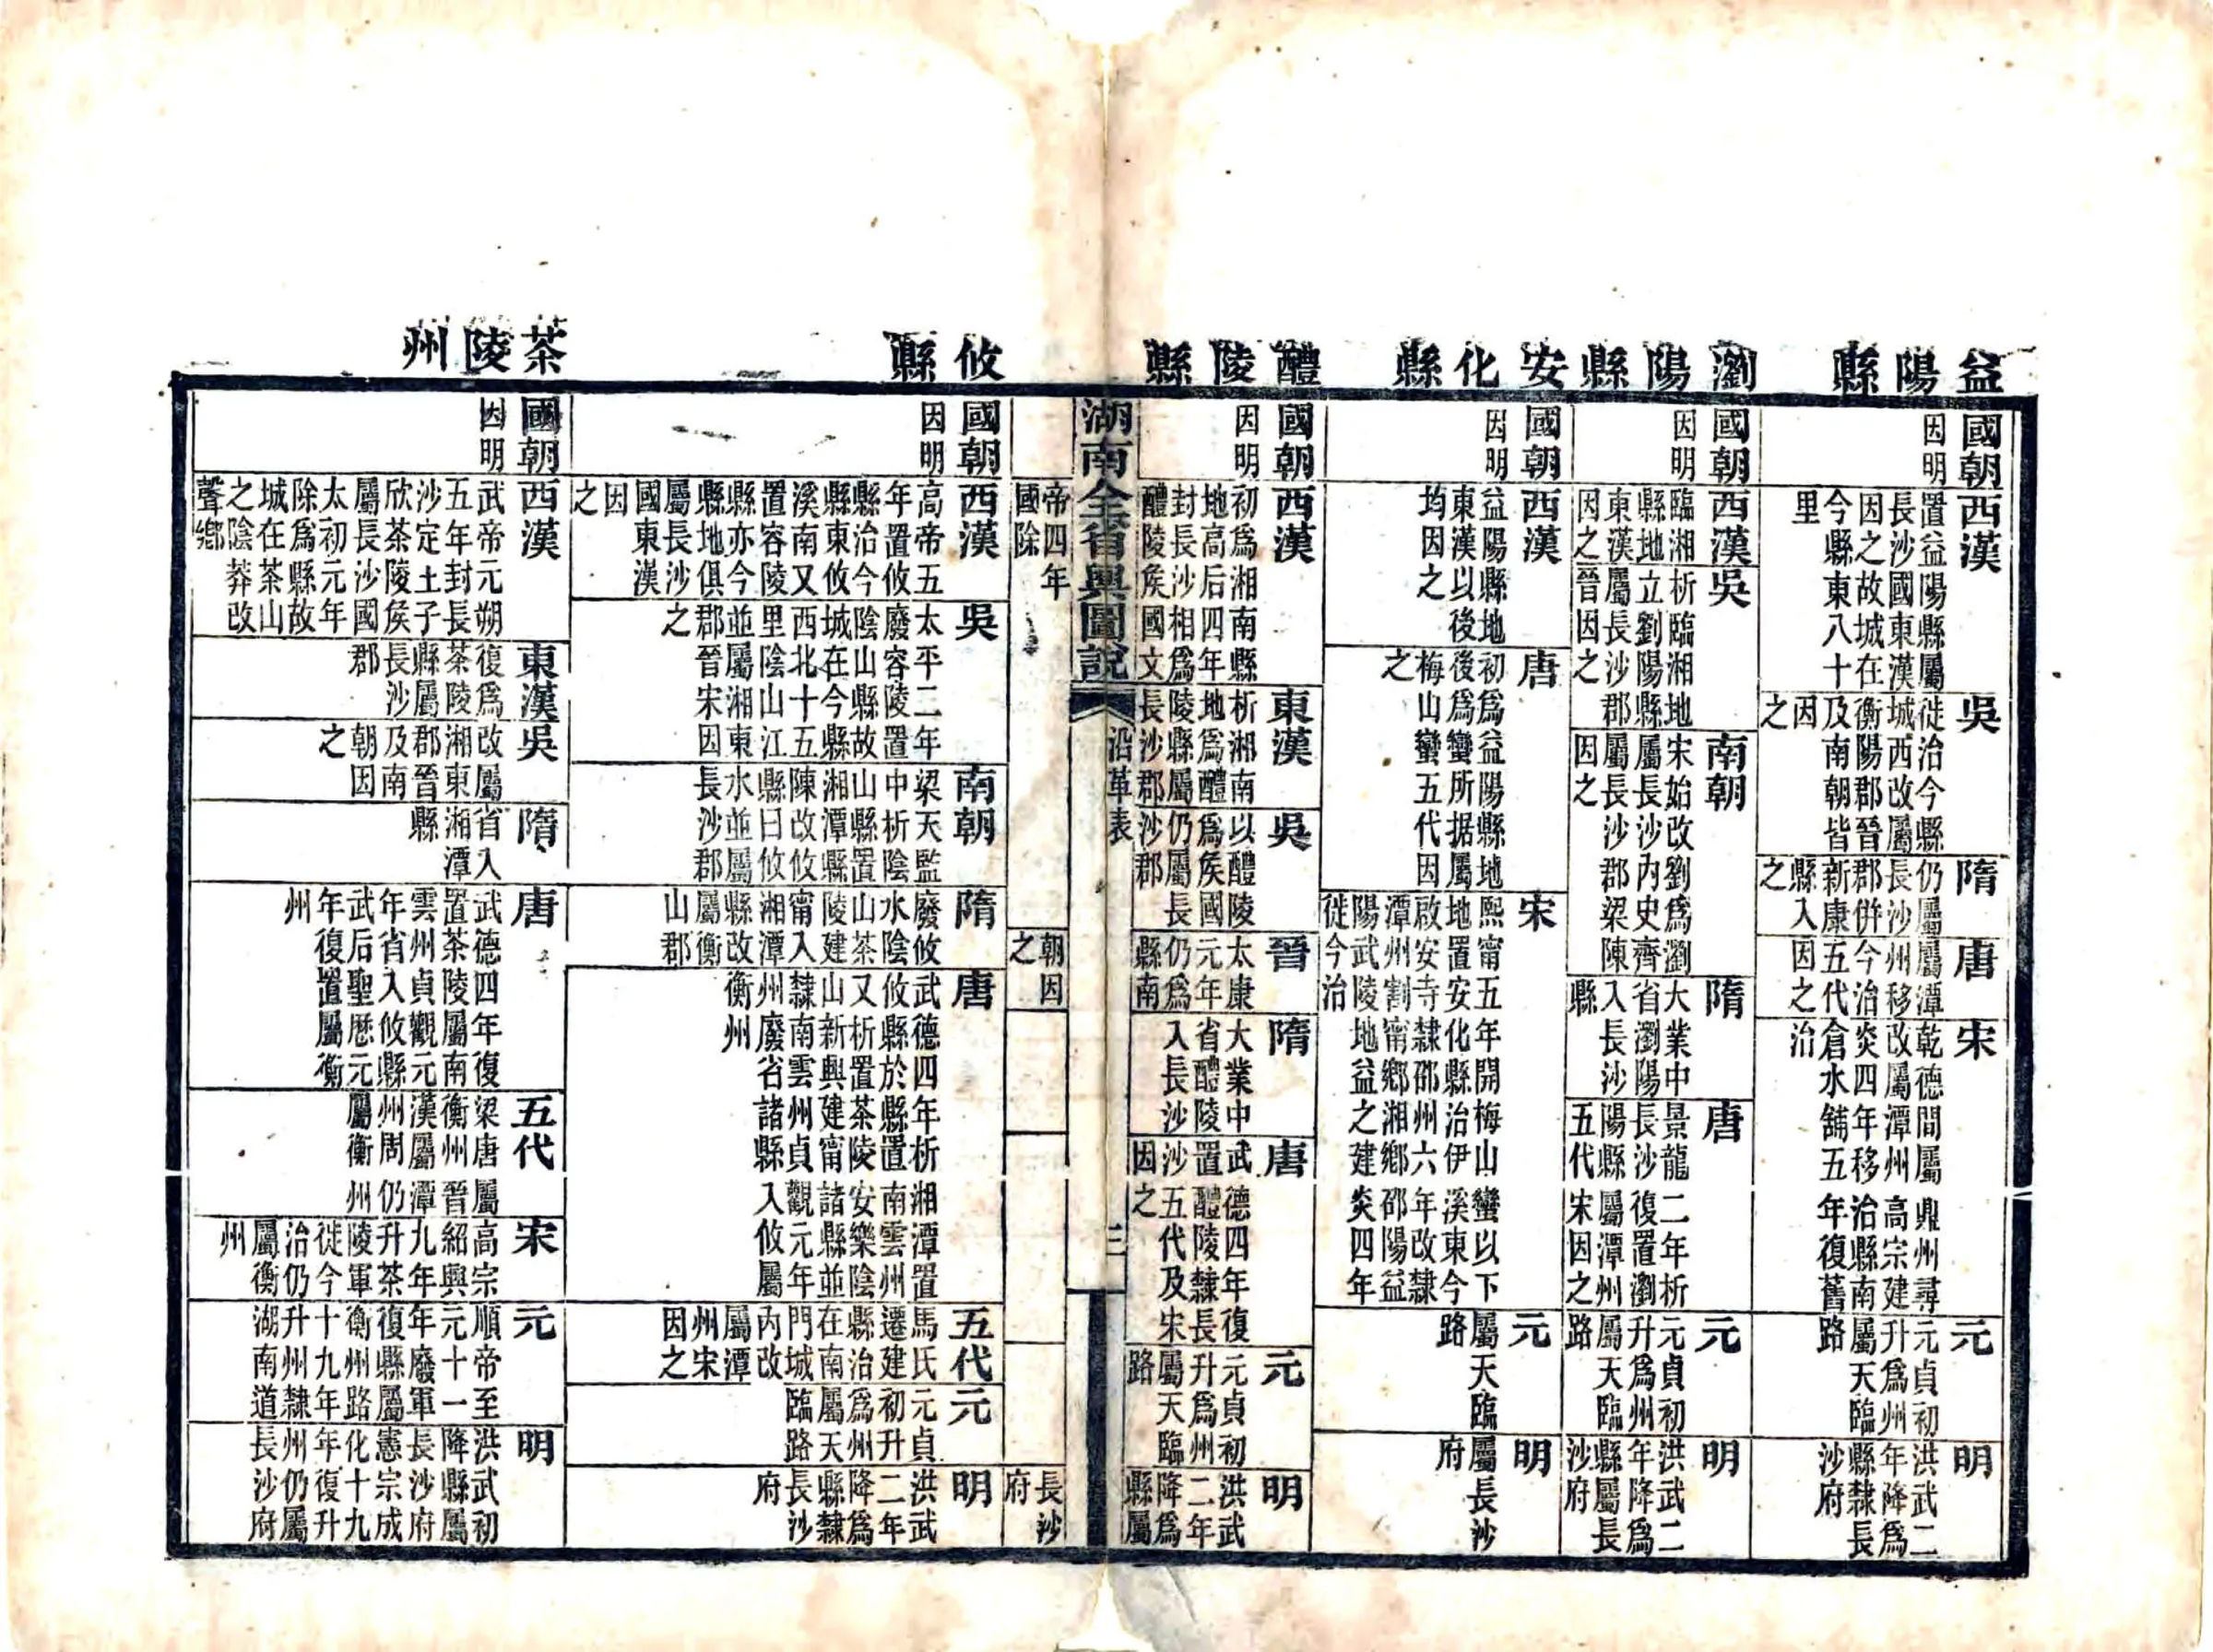 益陽縣
國朝
因明
西漢
置益陽縣屬
長沙國東漢
因之故城在
今縣東八十
里
吳
徙治今縣
城西改屬
衡陽郡晉
及南朝皆
因
之
隋
仍屬
長沙
郡併
新康
縣入
之
唐
屬潭
州移
今治
五代
因之
宋
乾德間屬鼎州尋
改屬潭州高宗建
炎四年移治縣南
倉水舖五年復舊
治
元
元貞初
升爲州
屬天臨
路
明
洪武二
年降爲
縣隸長
沙府
瀏陽縣
國朝
因明
西漢
臨湘
縣地
東漢
因之
吳
析臨湘地
立劉陽縣
屬長沙郡
晉因之
南朝
宋始改劉爲瀏
屬長沙內史齊
屬長沙郡梁陳
因之
隋
大業中
省瀏陽
入長沙
縣
唐
景龍二年析
長沙復置瀏
陽縣屬潭州
五代宋因之
元
元貞初
升爲州
屬天臨
路
明
洪武二
年降爲
縣屬長
沙府
安化縣
國朝
因明
西漢
益陽縣地
東漢以後
均因之
唐
初爲益陽縣地
後爲蠻所据屬
梅山蠻五代因
之
宋
熙甯五年開梅山蠻以下
地置安化縣治伊溪東今
啟安寺隸邵州六年改隸
潭州割甯鄉湘鄉邵陽益
陽武陵地益之建炎四年
徙今治
元
屬天臨
路
明
屬長沙
府
醴陵縣
國朝
因明
西漢
初爲湘南縣
地高后四年
封長沙相爲
醴陵侯國文
東漢
析湘南
地爲醴
陵縣屬
長沙郡
吳
以醴陵
爲侯國
仍屬長
沙郡
晉
太康
元年
仍爲
縣南
隋
大業中
省醴陵
入長沙
唐
武德四年復
置醴陵隸長
沙五代及宋
因之
元
元貞初
升爲州
屬天臨
路
明
洪武
二年
降爲
縣屬
湖南全省輿圖說
沿革表
三
帝四年
國除
朝因
之
長沙
府
攸縣
國朝
因明
西漢
高帝五
年置攸
縣治今
縣東攸
溪南又
置容陵
縣亦今
縣地俱
屬長沙
國東漢
因
之
吳
太平二年
廢容陵置
陰山縣故
城在今縣
西北十五
里陰山江
並屬湘東
郡晉宋因
之
南朝
梁天監
中析陰
山縣置
湘潭縣
陳改攸
縣曰攸
水並屬
長沙郡
隋
廢攸
水陰
山茶
陵建
甯入
湘潭
縣改
屬衡
山郡
唐
武德四年析湘潭置
攸縣於縣置南雲州
又析置茶陵安樂陰
山新興建甯諸縣並
隸南雲州貞觀元年
州廢省諸縣入攸屬
衡州
五代
馬氏
遷建
縣治
在南
門城
內改
屬潭
州宋
因之
元
元貞
初升
爲州
屬天
臨路
明
洪武
二年
降爲
縣隸
長沙
府
茶陵州
國朝
因明
西漢
武帝元朔
五年封長
沙定土子
欣茶陵侯
屬長沙國
太初元年
除爲縣故
城在茶山
之陰莽改
聲鄉
東漢
復爲
茶陵
縣屬
長沙
郡
吳
改屬
湘東
郡晉
及南
朝因
之
隋
省入
湘潭
縣
唐
武德四年復
置茶陵屬南
雲州貞觀元
年省入攸縣
武后聖厯元
年復置屬衡
州
五代
梁唐屬
衡州晉
漢屬潭
州周仍
屬衡州
宋
高宗
紹興
九年
升茶
陵軍
徙今
治仍
屬衡
州
元
順帝至
元十一
年廢軍
復縣屬
衡州路
十九年
升州隸
湖南道
明
洪武初
降縣屬
長沙府
憲宗成
化十九
年復升
州仍屬
長沙府